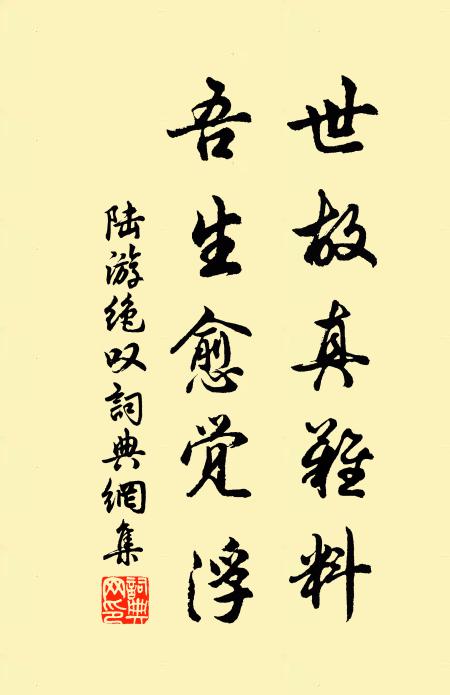 世故真難料
吾生愈覚浮
陆游绝叹詞典網集
詞典網印